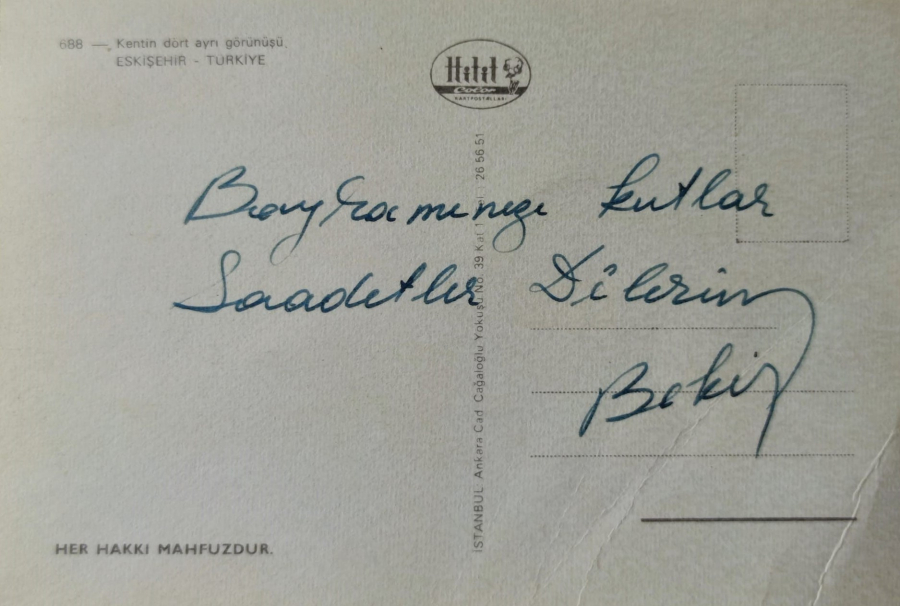 6B8 — Kentin dört ayrı görünüşü.
ESKİŞEHİR - TÜRKİYE
Hitit
Color
KARTPOSTALLARI
Bayramınızı kutlar
Saadetler Dilerim
Bekir
İSTANBUL Ankara Cad Cağaloğlu Yokuşu No. 39 Kat 1 26 56 51
HER HAKKI MAHFUZDUR.